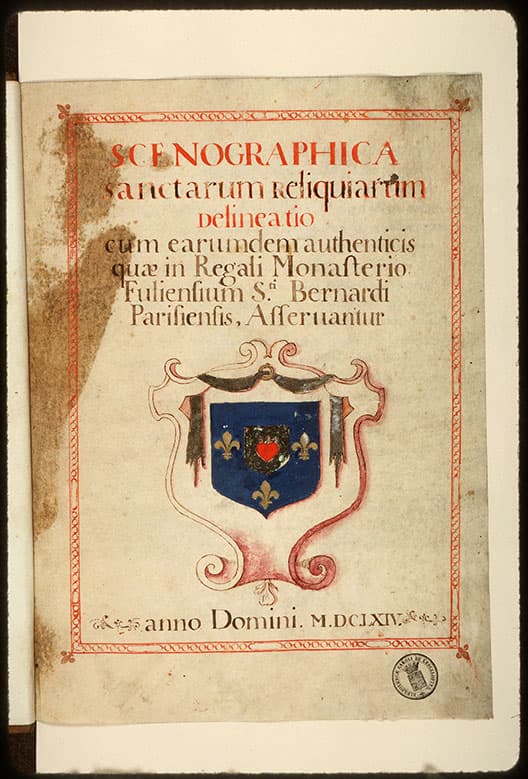 SCENOGRAPHICA
sanctarum Reliquiarum
Delineatio
cum earumdem authenticis
quæ in Regali Monasterio.
Fuliensium S.ti Bernardi
Parisiensis, Asseruantur
anno Domini. M.DCLXIV